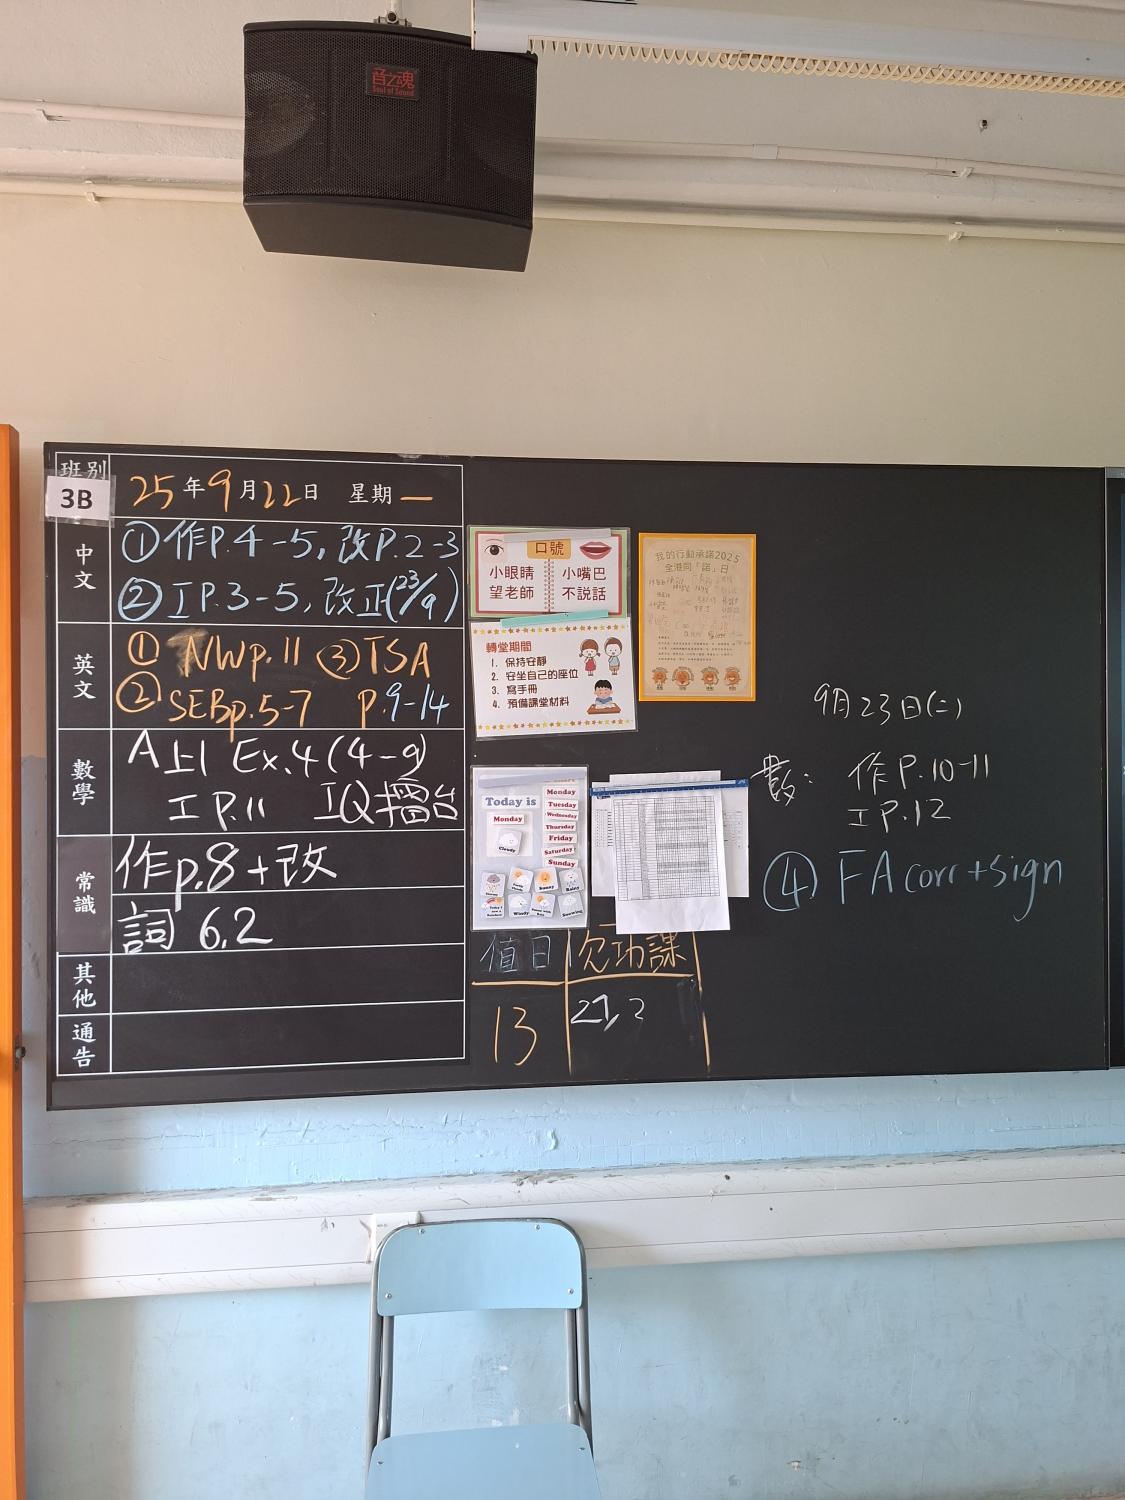 音之魂
Soul of Sound
班別
3B
25年9月22日 星期一
中文
①作P.4-5,改P.2-3
②工P.3-5,改正(23/9)
英文
① NWp.11 ③TSA
② SEBp.5-7 p.9-14
數學
A上1 Ex.4(4-9)
工P.11 IQ擂台
常識
作p.8+改
詞 6.2
其他
通告
口號
小眼睛
望老師
小嘴巴
不說話
轉堂期間
1. 保持安靜
2. 安坐自己的座位
3. 寫手冊
4. 預備課堂材料
我的行動承諾2025
全港同「諾」日
Today is
Monday
Cloudy
Monday
Tuesday
Wednesday
Thursday
Friday
Saturday
Sunday
Sunny
Rainy
Windy
值日 欠功課
13 27,2
9月23日(二)
數: 作P.10-11
工P.12
④ FA corr+sign